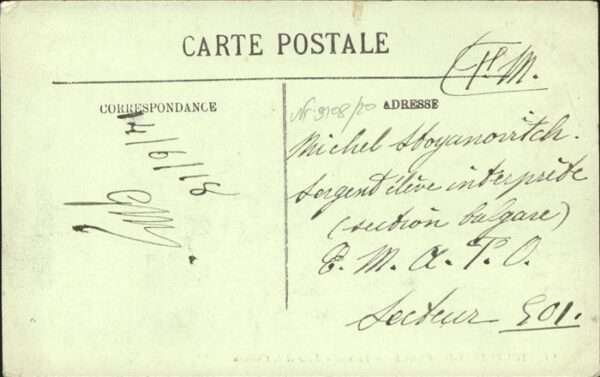 CARTE POSTALE
F.M.
CORRESPONDANCE
17/6/18
Nr. 9108/20
ADRESSE
Michel Stoyanovitch.
Sergent élève interprète
(section bulgare)
E. M. A. F. O.
Secteur 501.